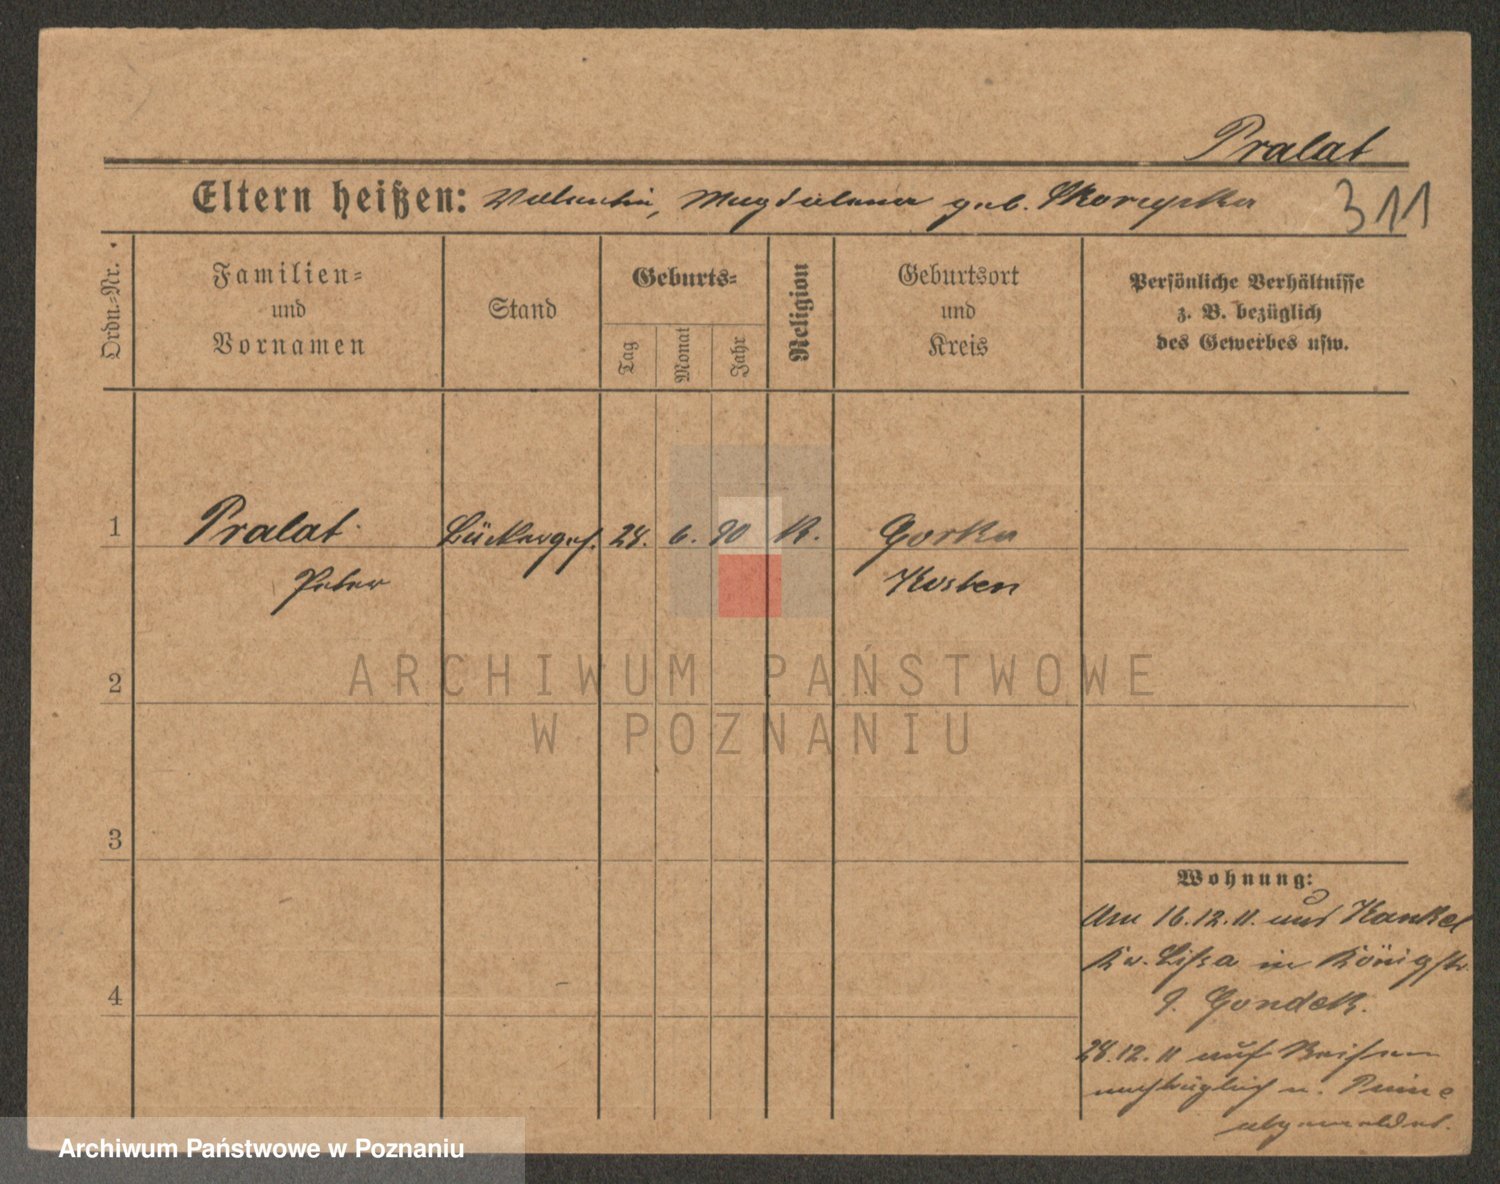 Pralat
Eltern heißen: Valentin, Magdalena geb. Skorupska
311
Ordn.-Nr.
Familien-
und
Vornamen
Stand
Geburts-
Tag
Monat
Jahr
Religion
Geburtsort
und
Kreis
Persönliche Verhältnisse
z. B. bezüglich
des Gewerbes usw.
1
Pralat
Bäckerges. 28. 6. 90 K. Gorka
Peter
Kosten
2
ARCHIWUM PAŃSTWOWE
W POZNANIU
3
4
Wohnung:
Am 16.12.11. aus Kankel
Kr. Lissa in Königstr.
9. Gondek.
28.12.11 auf Reisen
nachträglich n. Pinne
abgemeldet.
Archiwum Państwowe w Poznaniu